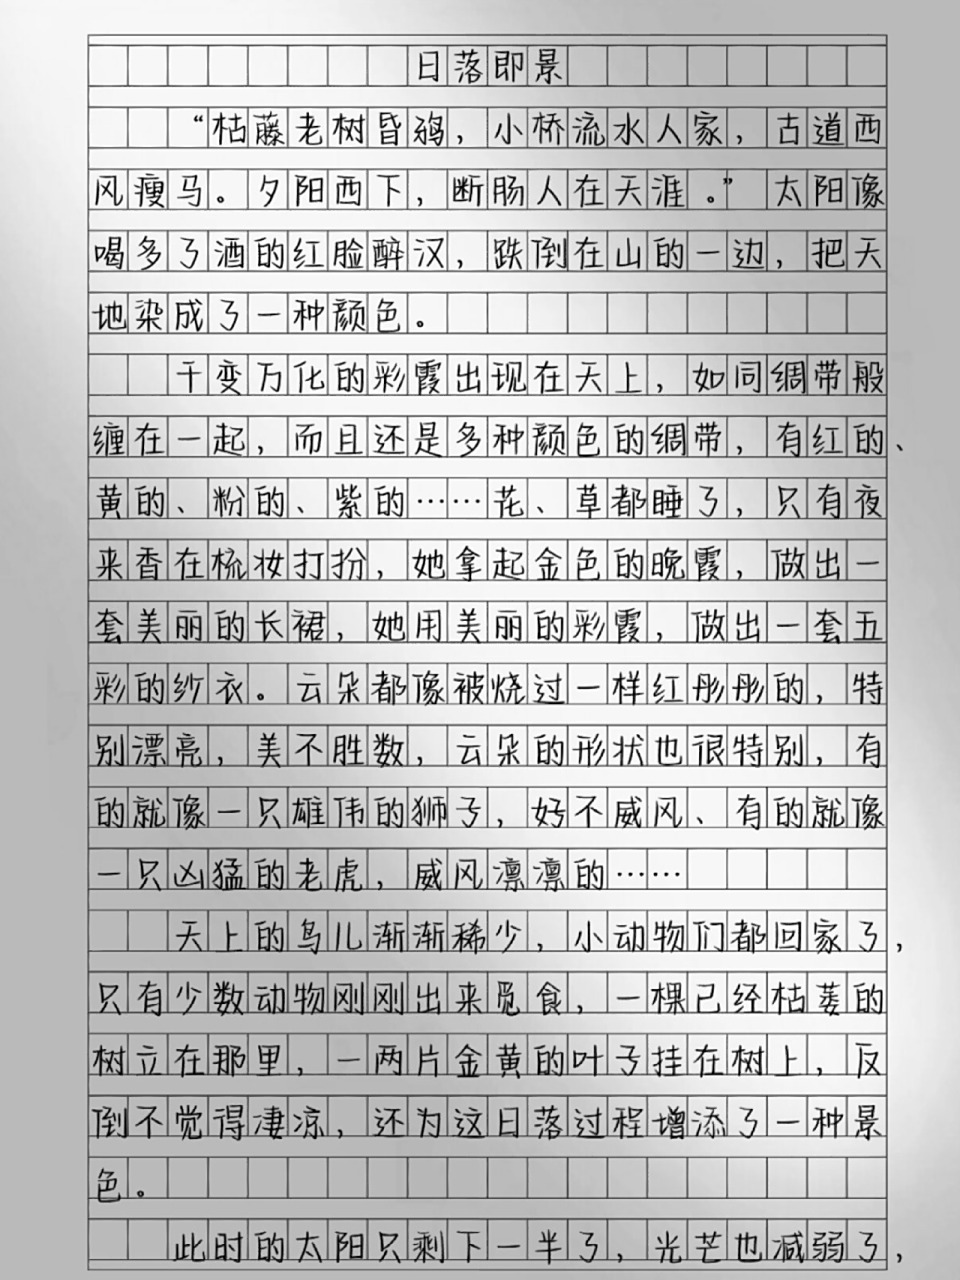 日落即景
“枯藤老树昏鸦，小桥流水人家，古道西
风瘦马。夕阳西下，断肠人在天涯。”太阳像
喝多了酒的红脸醉汉，跌倒在山的一边，把天
地染成了一种颜色。
千变万化的彩霞出现在天上，如同绸带般
缠在一起，而且还是多种颜色的绸带，有红的、
黄的、粉的、紫的……花、草都睡了，只有夜
来香在梳妆打扮，她拿起金色的晚霞，做出一
套美丽的长裙，她用美丽的彩霞，做出一套五
彩的纱衣。云朵都像被烧过一样红彤彤的，特
别漂亮，美不胜数，云朵的形状也很特别，有
的就像一只雄伟的狮子，好不威风、有的就像
一只凶猛的老虎，威风凛凛的……
天上的鸟儿渐渐稀少，小动物们都回家了，
只有少数动物刚刚出来觅食，一棵已经枯萎的
树立在那里，一两片金黄的叶子挂在树上，反
倒不觉得凄凉，还为这日落过程增添了一种景
色。
此时的太阳只剩下一半了，光芒也减弱了，